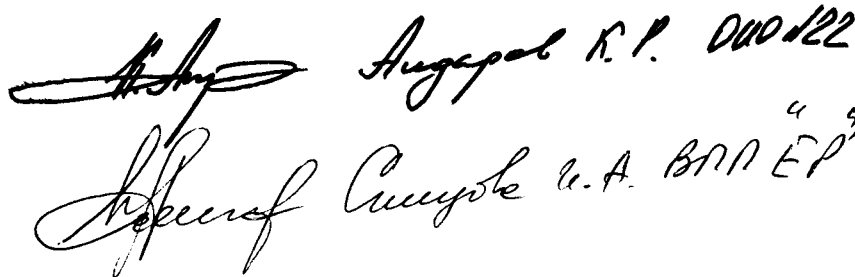 Айдаров К.Р. ОИО №22
Синцова И.А. ВПП "ЕР"